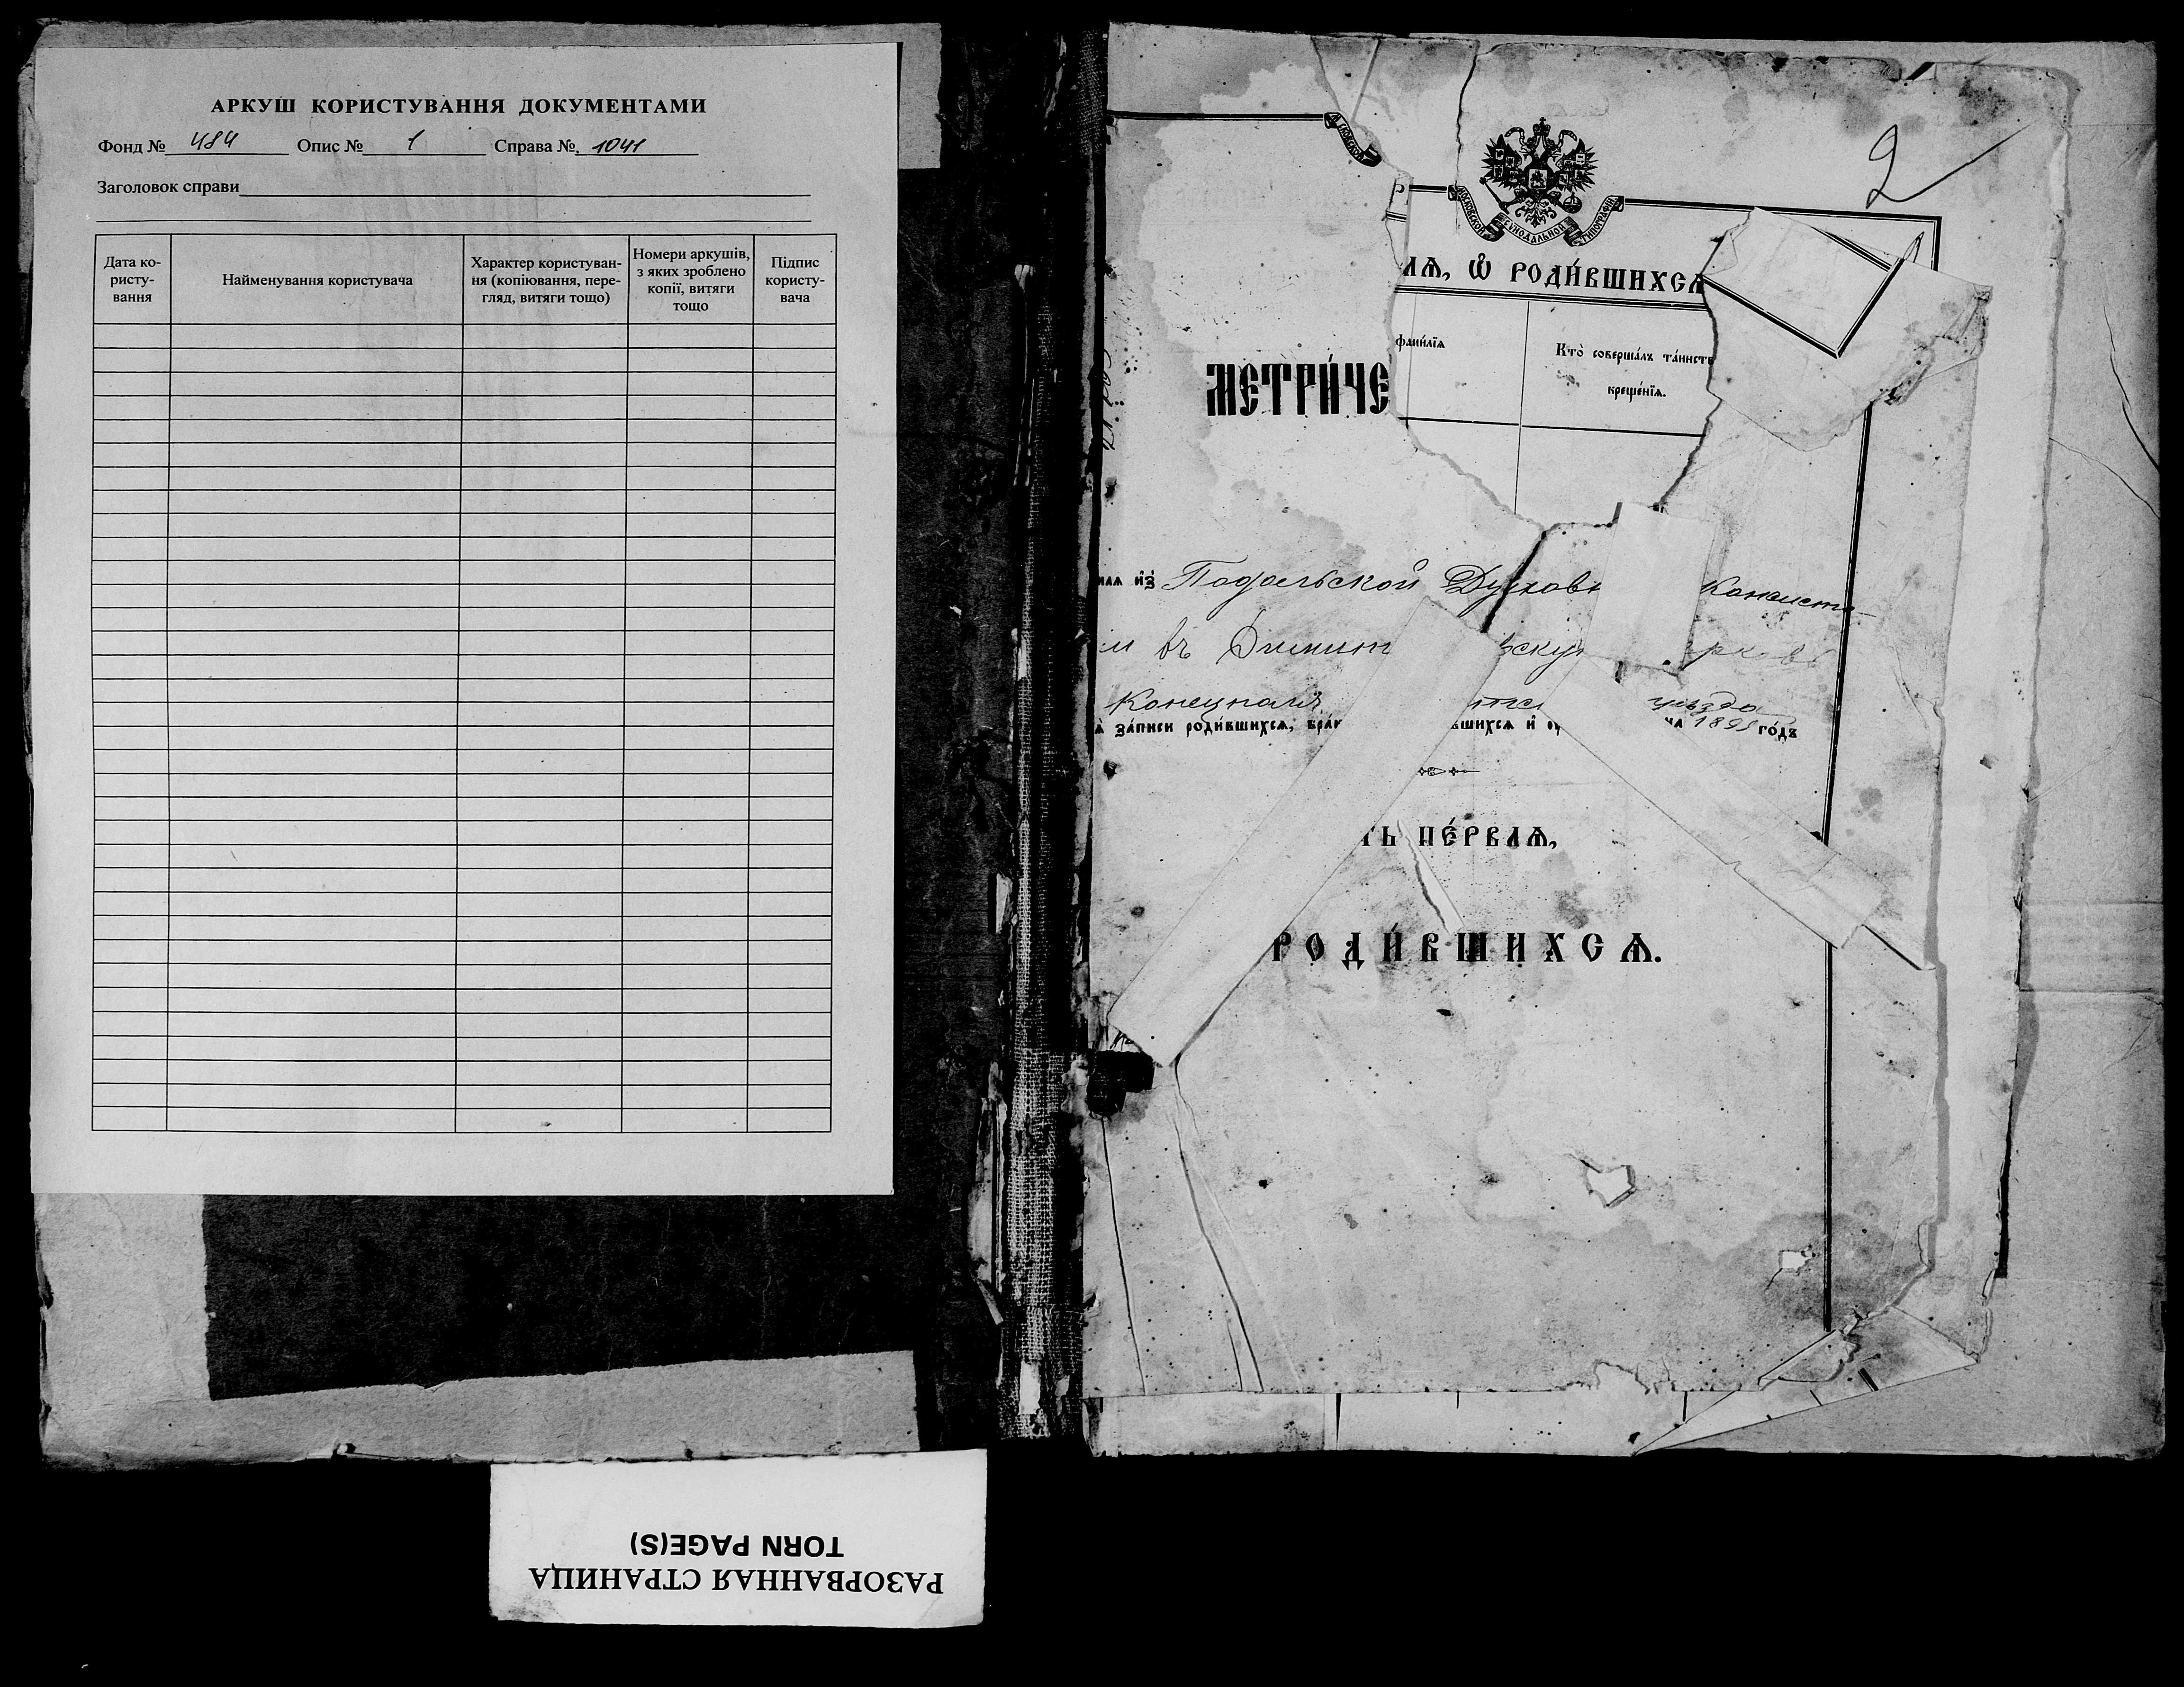 АРКУШ КОРИСТУВАННЯ ДОКУМЕНТАМИ
Фонд № 484 Опис № 1 Справа № 1041
Заголовок справи
Дата ко-
ристу-
вання
Найменування користувача
Характер користуван-
ня (копіювання, пере-
гляд, витяги тощо)
Номери аркушів,
з яких зроблено
копії, витяги
тощо
Підпис
користу-
вача
2
МОСКОВСКОЙ СѴНОДАЛЬНОЙ ТИПОГРАФІИ
ЛѦ, Ѽ РОДИ́ВШИХСѦ
фами́лїѧ
Кто̀ соверша́лъ та́инств
креще́нїѧ.
МЕТРИ́ЧЕ
и҆з̾ Подольской Духовн Консисто
въ Димит вску рковь
Конецполь уѣзда
за́писи роди́вшихсѧ, бра́к вшихсѧ и҆ на 1895 го́дъ
ТЬ ПЕ́РВАѦ,
РОДИ́ВШИХСѦ.
РАЗОРВАННАЯ СТРАНИЦА
TORN PAGE(S)